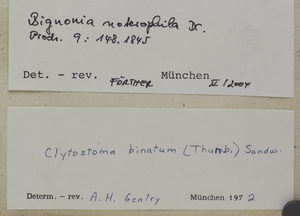 Bignonia noterophila Dr.
Prodr. 9: 148. 1845
Det. - rev. FÖRTHER München II/2004
Clytostoma binatum (Thunb.) Sandw.
Determ. - rev. A. H. Gentry München 1972